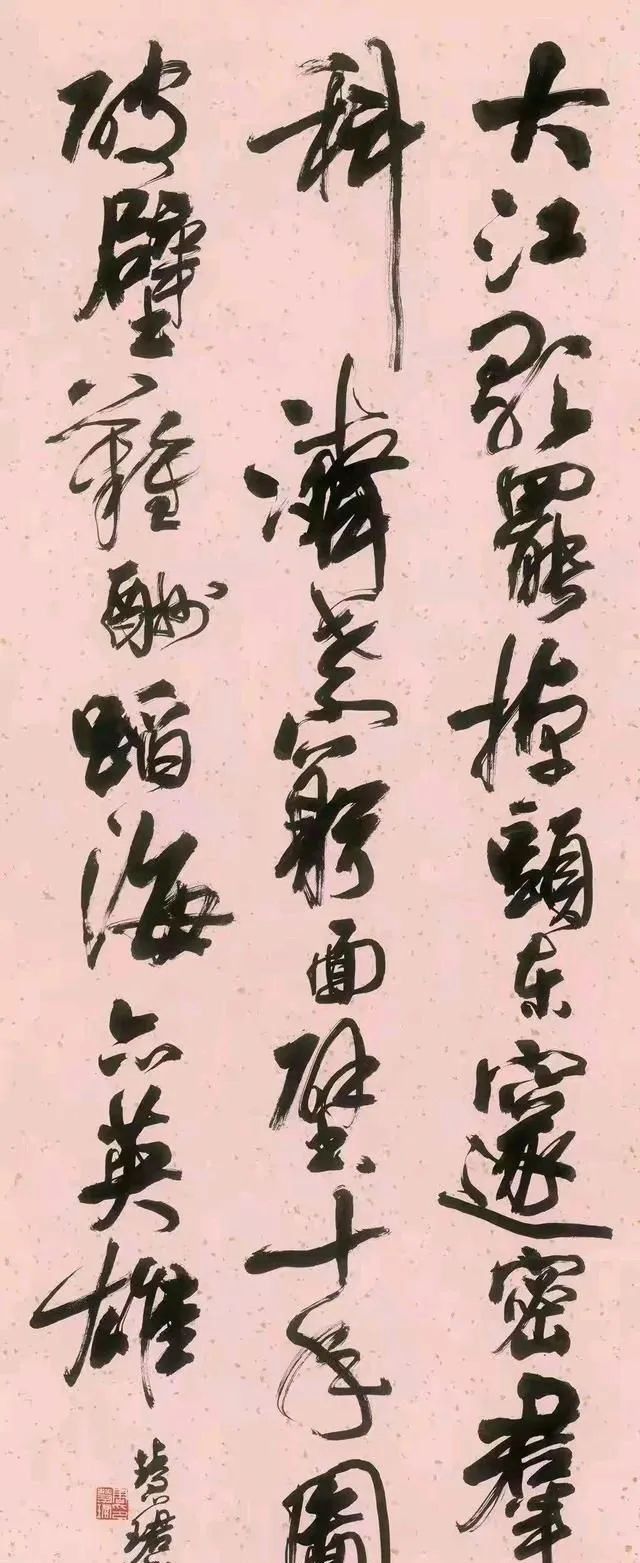 大江歌罷掉頭東邃密羣
科濟世窮面壁十年圖
破壁難酬蹈海亦英雄